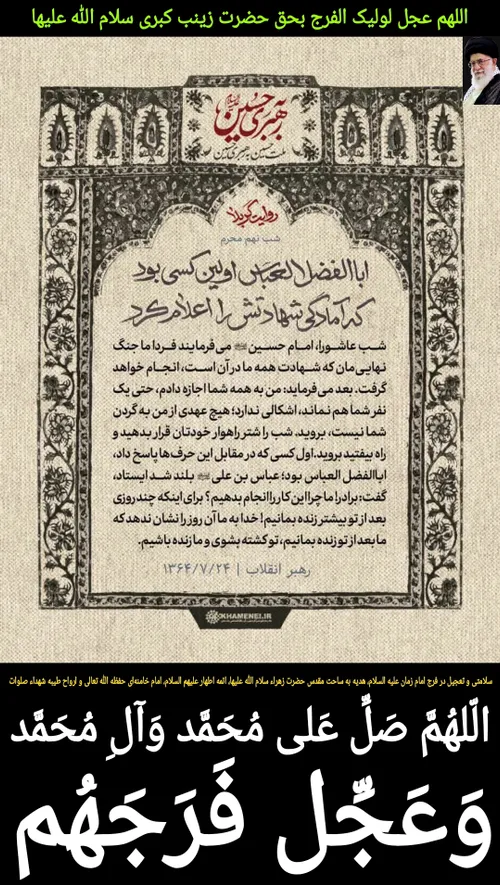 اللهم عجل لولیک الفرج بحق حضرت زینب کبری سلام الله علیها
رهبری حسین
ملت حسین به رهبری حسین
روایت کربلا
شب نهم محرم
اباالفضل العباس اولین کسی بود
که آمادگی شهادتش را اعلام کرد
شب عاشورا، امام حسین می‌فرمایند فردا ما جنگ
نهایی‌مان که شهادت همه ما در آن است، انجام خواهد
گرفت. بعد می‌فرماید: من به همه شما اجازه دادم، حتی یک
نفر شما هم نماند، اشکالی ندارد؛ هیچ عهدی از من به گردن
شما نیست، بروید. شب را شتر راهوار خودتان قرار بدهید و
راه بیفتید بروید. اول کسی که در مقابل این حرف‌ها پاسخ داد،
اباالفضل العباس بود؛ عباس بن علی بلند شد ایستاد،
گفت: برادر! ما چرا این کار را انجام بدهیم؟ برای اینکه چند روزی
بعد از تو بیشتر زنده بمانیم! خدا به ما آن روز را نشان ندهد که
ما بعد از تو زنده بمانیم، تو کشته بشوی و ما زنده باشیم.
رهبر انقلاب | ۱۳۶۴/۷/۲۴
KHAMENEI.IR
سلامتی و تعجیل در فرج امام زمان علیه السلام، هدیه به ساحت مقدس حضرت زهراء سلام الله علیها، ائمه اطهار علیهم السلام، امام خامنه‌ای حفظه الله تعالی و ارواح طیبه شهداء صلوات
الّلهُمَّ صَلِّ عَلی مُحَمَّد وَآلِ مُحَمَّد
وَعَجِّل فَرَجَهُم